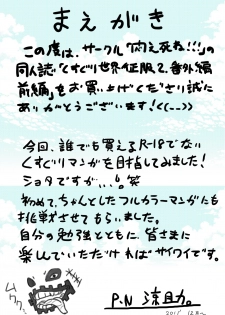 まえがき
この度は、サークル「悶え死ね!!!」の
同人誌「くすぐり世界征服2、番外編
前編」をお買い上げくださり誠に
ありがとうございます!<(_ _)>
今回、誰でも買えるR-18でない
くすぐりマンガを目指してみました!
ショタですが…。笑
初めて、ちゃんとしたフルカラーマンガにも
挑戦させてもらいました。
自分の勉強とともに、皆さまに
楽しんでいただければサイワイです。
P.N